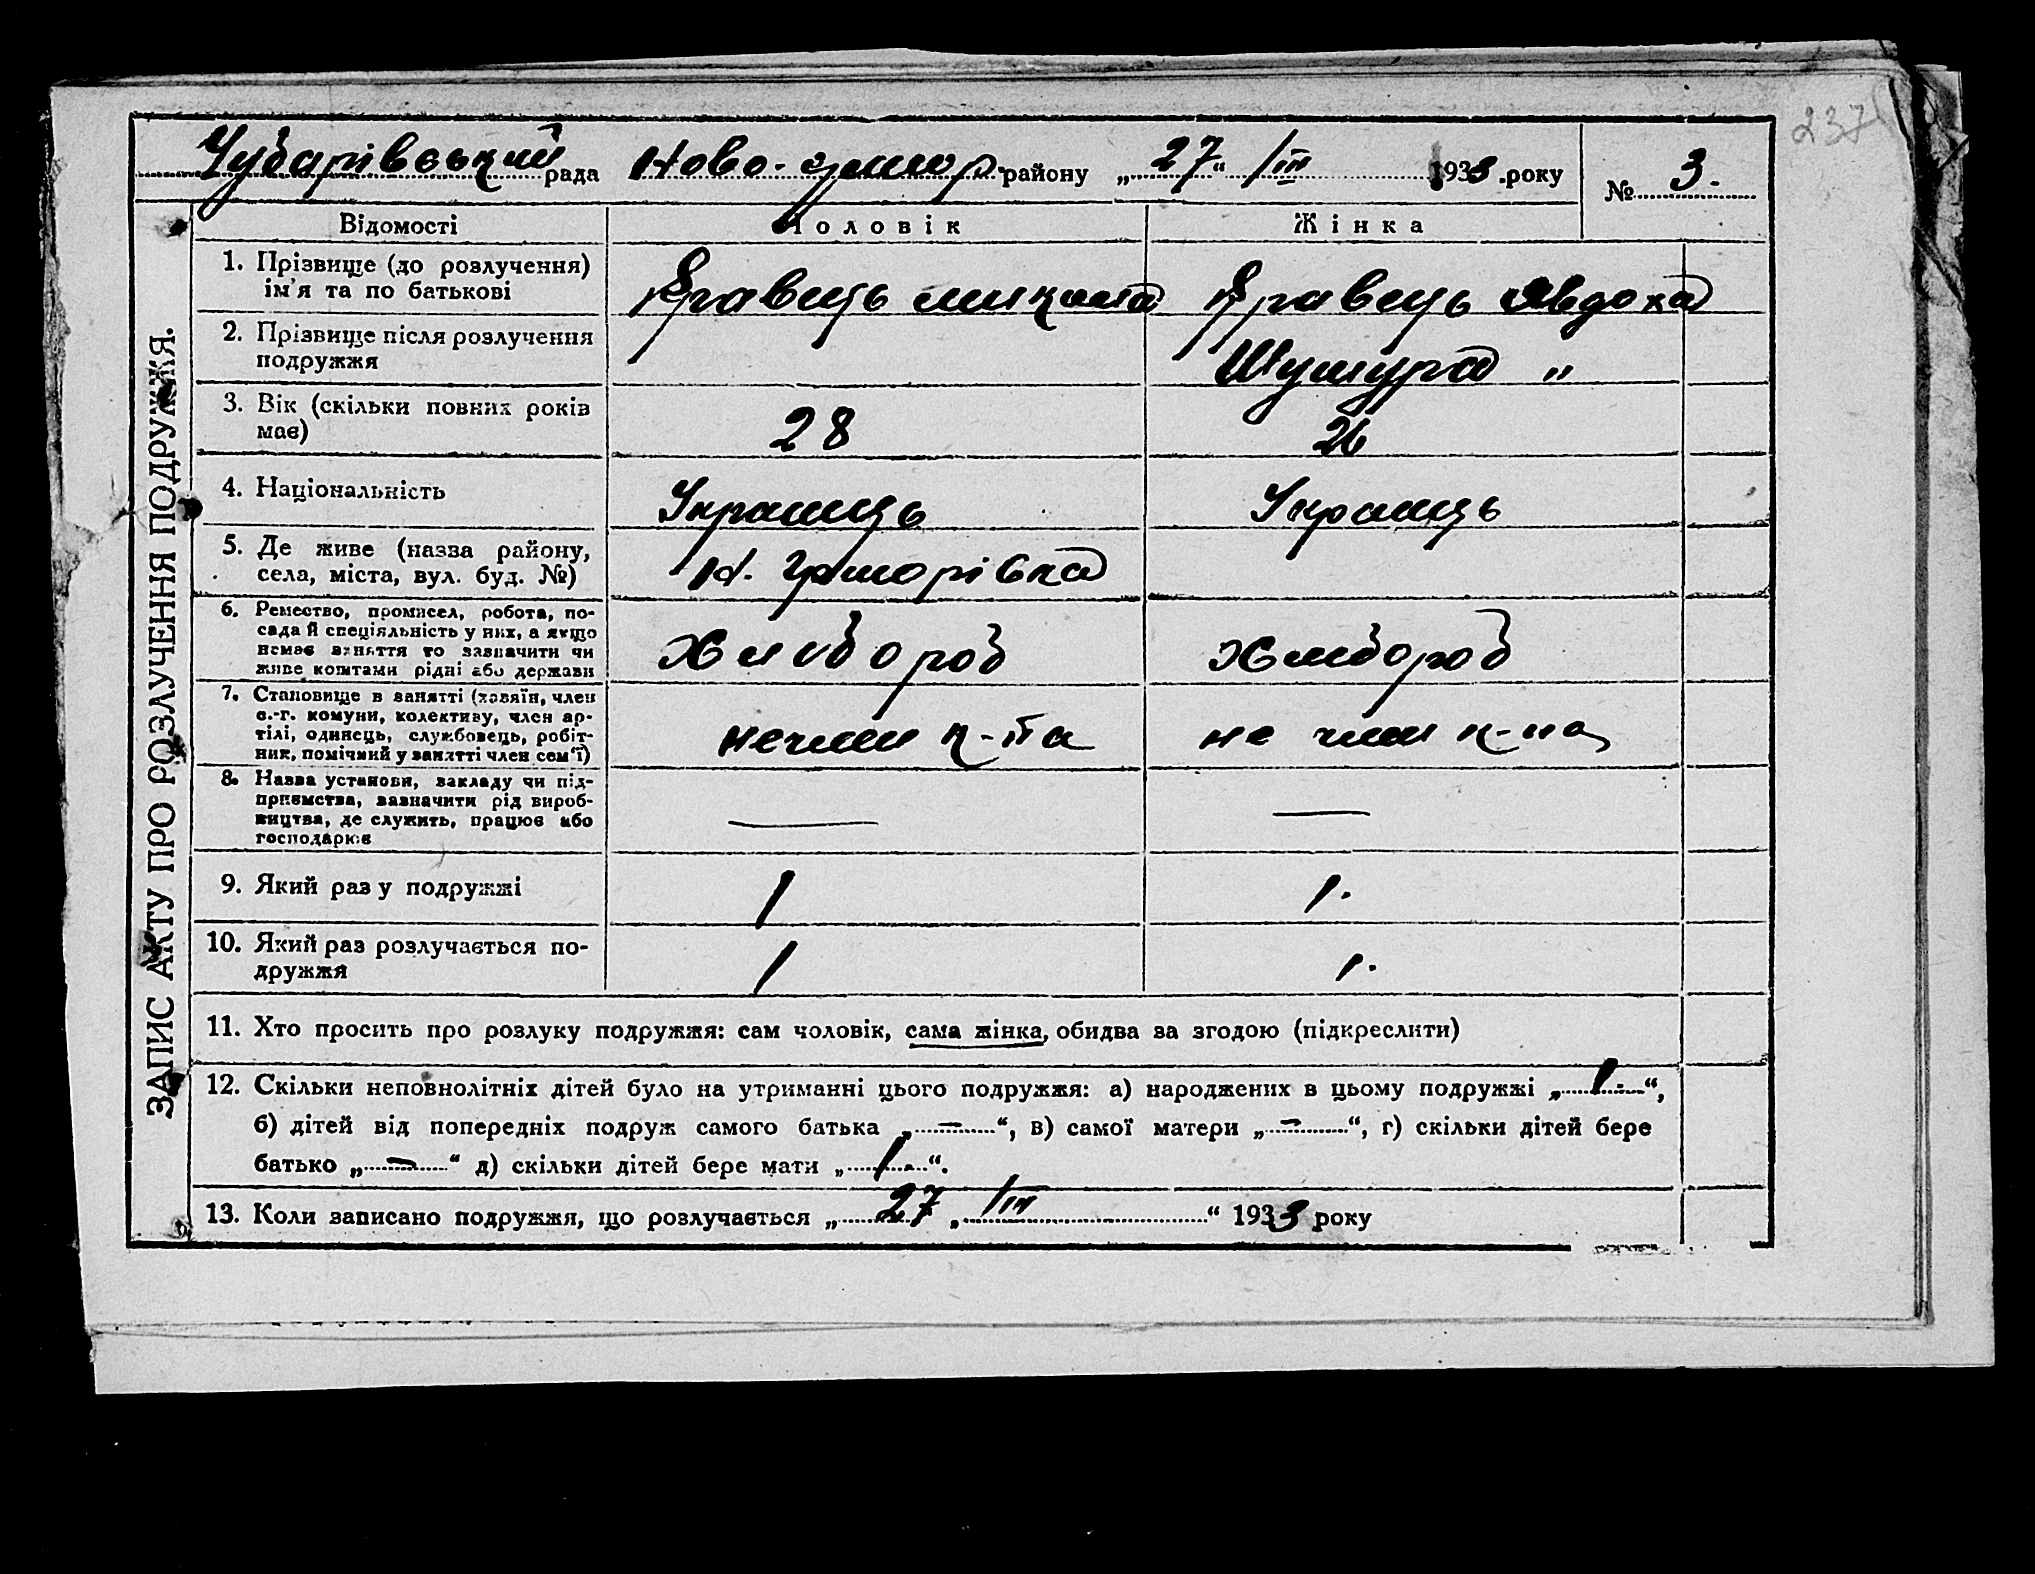 237
Чубарівський рада Ново-златор. району „27“ /III 1933. року № 3.
ЗАПИС АКТУ ПРО РОЗЛУЧЕННЯ ПОДРУЖЖЯ.
Відомості Чоловік Жінка
1. Прізвище (до розлучення) ім'я та по батькові Кравець Микола Кравець Явдоха
2. Прізвище після розлучення подружжя Шушура "
3. Вік (скільки повних років має) 28 26
4. Національність Українець Українець
5. Де живе (назва району, села, міста, вул. буд. №) Н.
6. Ремество, промисел, робота, посада й спеціяльність у них, а якщо немає заняття то зазначити чи живе коштами рідні або держави Хлибороб Хлибороб
7. Становище в занятті (хазяїн, член с.-г. комуни, колективу, член артілі, одинець, службовець, робітник, помічний у занятті член сем'ї) нечлен к-па не член к-па
8. Назва установи, закладу чи підприємства, зазначити рід виробництва, де служить, працює або господарює — —
9. Який раз у подружжі 1 1.
10. Який раз розлучається подружжя 1 1.
11. Хто просить про розлуку подружжя: сам чоловік, сама жінка, обидва за згодою (підкреслити)
12. Скільки неповнолітніх дітей було на утриманні цього подружжя: а) народжених в цьому подружжі „1-“,
б) дітей від попередніх подруж самого батька „-“, в) самої матери „-“, г) скільки дітей бере
батько „-“ д) скільки дітей бере мати „1-“.
13. Коли записано подружжя, що розлучається „27 „ /III “ 1933 року